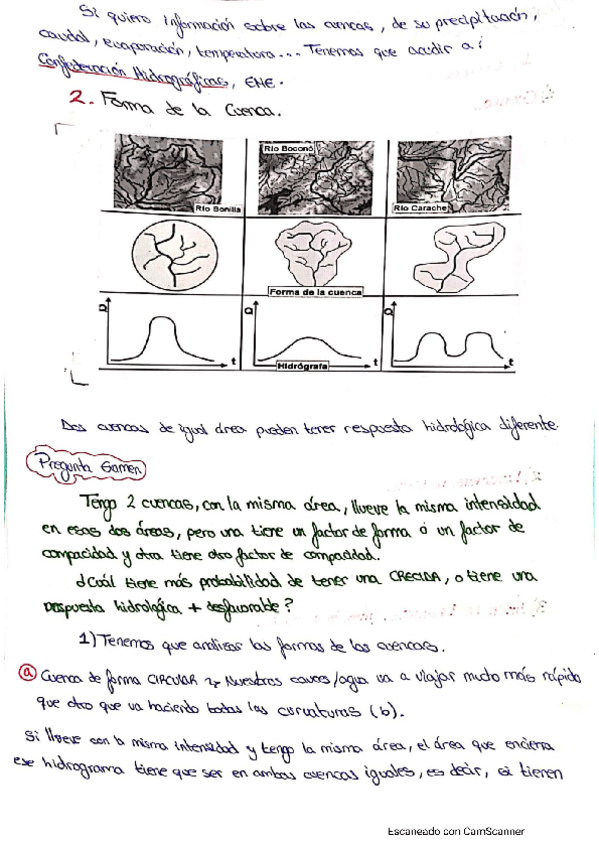 Si quiero información sobre las cuencas, de su precipitación,
caudal, evaporación, temperatura... Tenemos que acudir a:
Confederación Hidrográficas, ENE.
2. Forma de la Cuenca.
Río Bonilla
Río Boconó
Río Carache
Forma de la cuenca
Q
t
Q
Hidrógrafa
t
Q
t
Dos cuencas de igual área pueden tener respuesta hidrológica diferente.
Pregunta Examen
Tengo 2 cuencas, con la misma área, llueve la misma intensidad
en esas dos áreas, pero una tiene un factor de forma o un factor de
compacidad y otra tiene otro factor de compacidad.
¿Cuál tiene más probabilidad de tener una CRECIDA, o tiene una
respuesta hidrológica + desfavorable?
1) Tenemos que analizar las formas de las cuencas.
a Cuenca de forma CIRCULAR → Nuestros cauces/agua va a viajar mucho más rápido
que otro que va haciendo todas las curvaturas (b).
Si llueve con la misma intensidad y tengo la misma área, el área que encierra
ese hidrograma tiene que ser en ambas cuencas iguales, es decir, si tienen
Escaneado con CamScanner